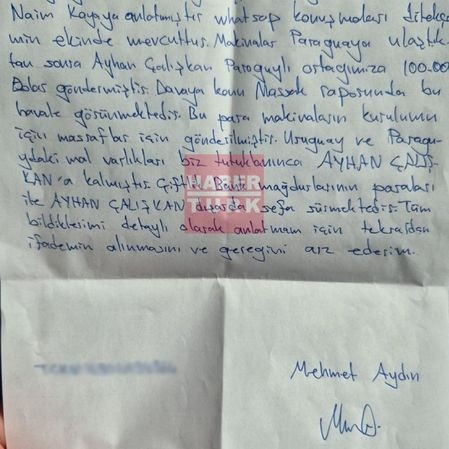 Naim Kaya'ya anlatmıştır whatsap konuşmaları dilekçe
min ekinde mevcuttur. Makinalar Paraguaya ulaştık
tan sonra Ayhan Çalışkan Paraguylı ortağımıza 100.00
Dolar göndermiştir. Davaya konu Massak raporunda bu
havale görünmektedir. Bu para makinaların kurulumu
için massaflar için gönderilmiştir. Uruguay ve Paragu
ydaki mal varlıkları biz tutuklanınca AYHAN ÇALIŞ
KAN'a kalmıştır. Çiftlik Bank mağdurlarının paraları
ile AYHAN ÇALIŞKAN dışarda sefa sürmektedir. Tüm
bildiklerimi detaylı olarak anlatmam için tekrardan
ifademin alınmasını ve gereğini arz ederim.
HABER
TURK
Mehmet Aydın